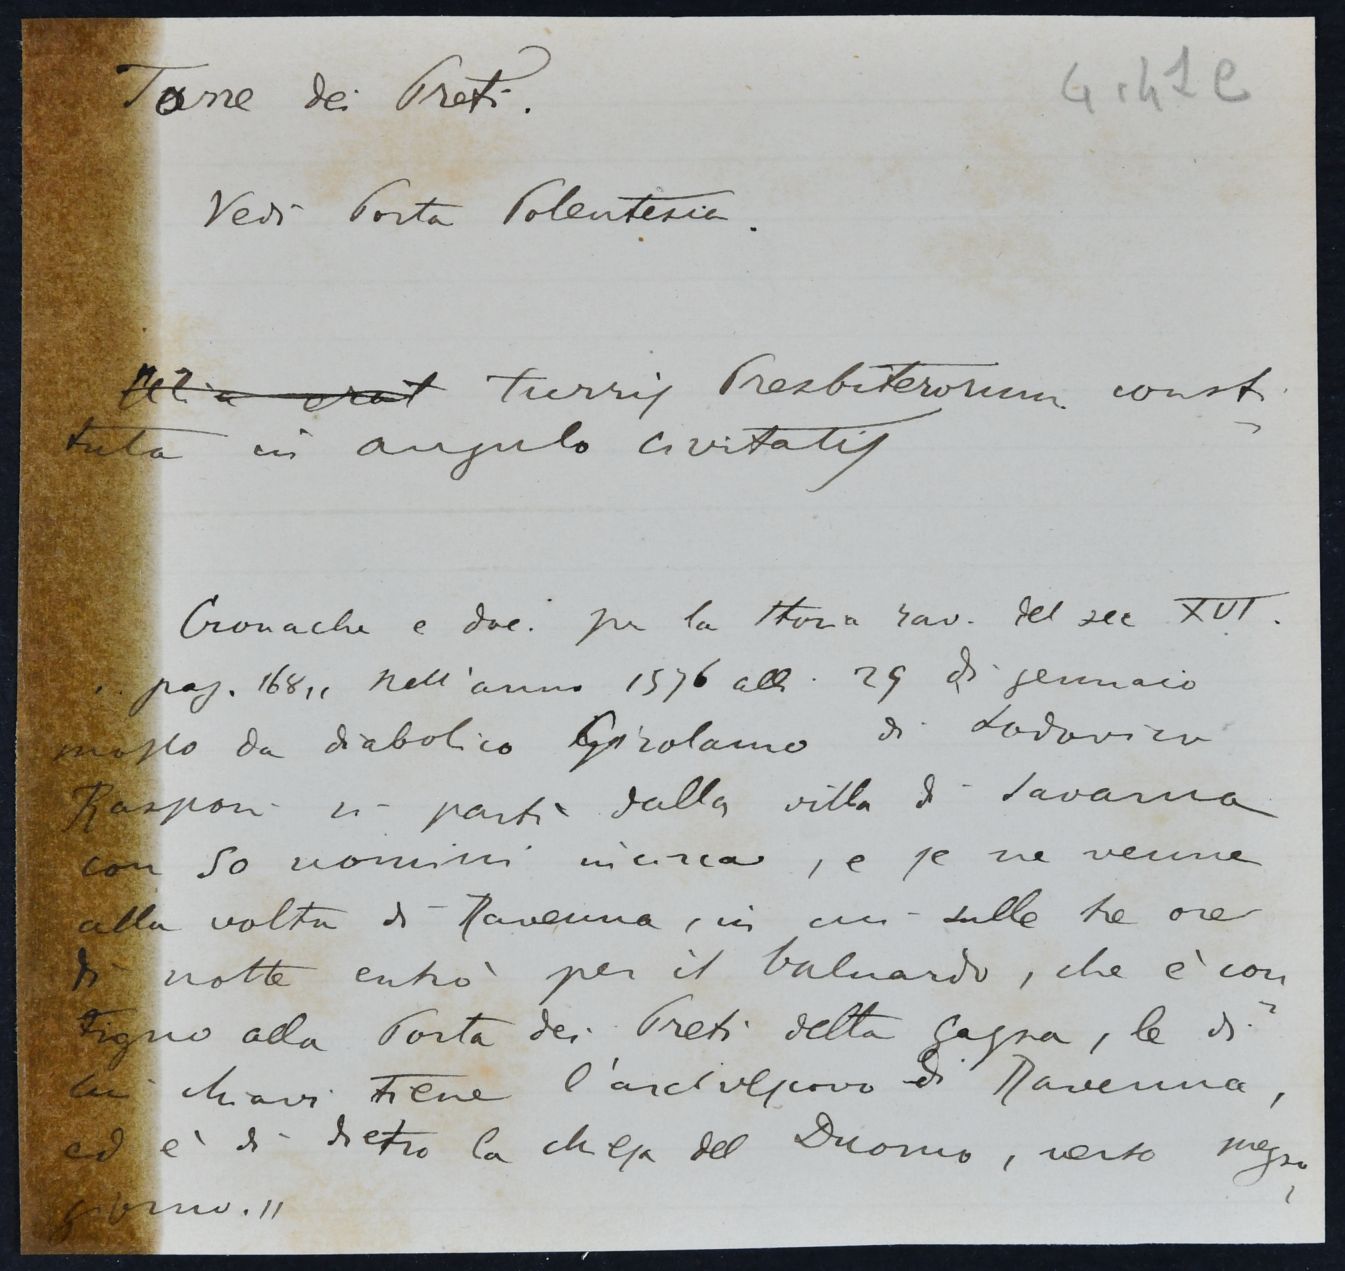 Torre dei Preti.
Vedi Porta Polentesia.
turris Presbiterorum consti
tuta in angulo civitatis
Cronache e doc. per la storia rav. del sec XVI.
pag. 168 „ Nell'anno 1576 alli 29 di gennaio
mosso da diabolico Girolamo di Lodovico
Rasponi si partì dalla villa di Savarna
con 50 uomini incirca, e se ne venne
alla volta di Ravenna, in cui sulle tre ore
di notte entrò per il baluardo, che è con
tiguo alla Porta dei Preti detta Gagza, le di
cui chiavi tiene l'arcivescovo di Ravenna,
ed è di dietro la chiesa del Duomo, verso mezzo
giorno. „